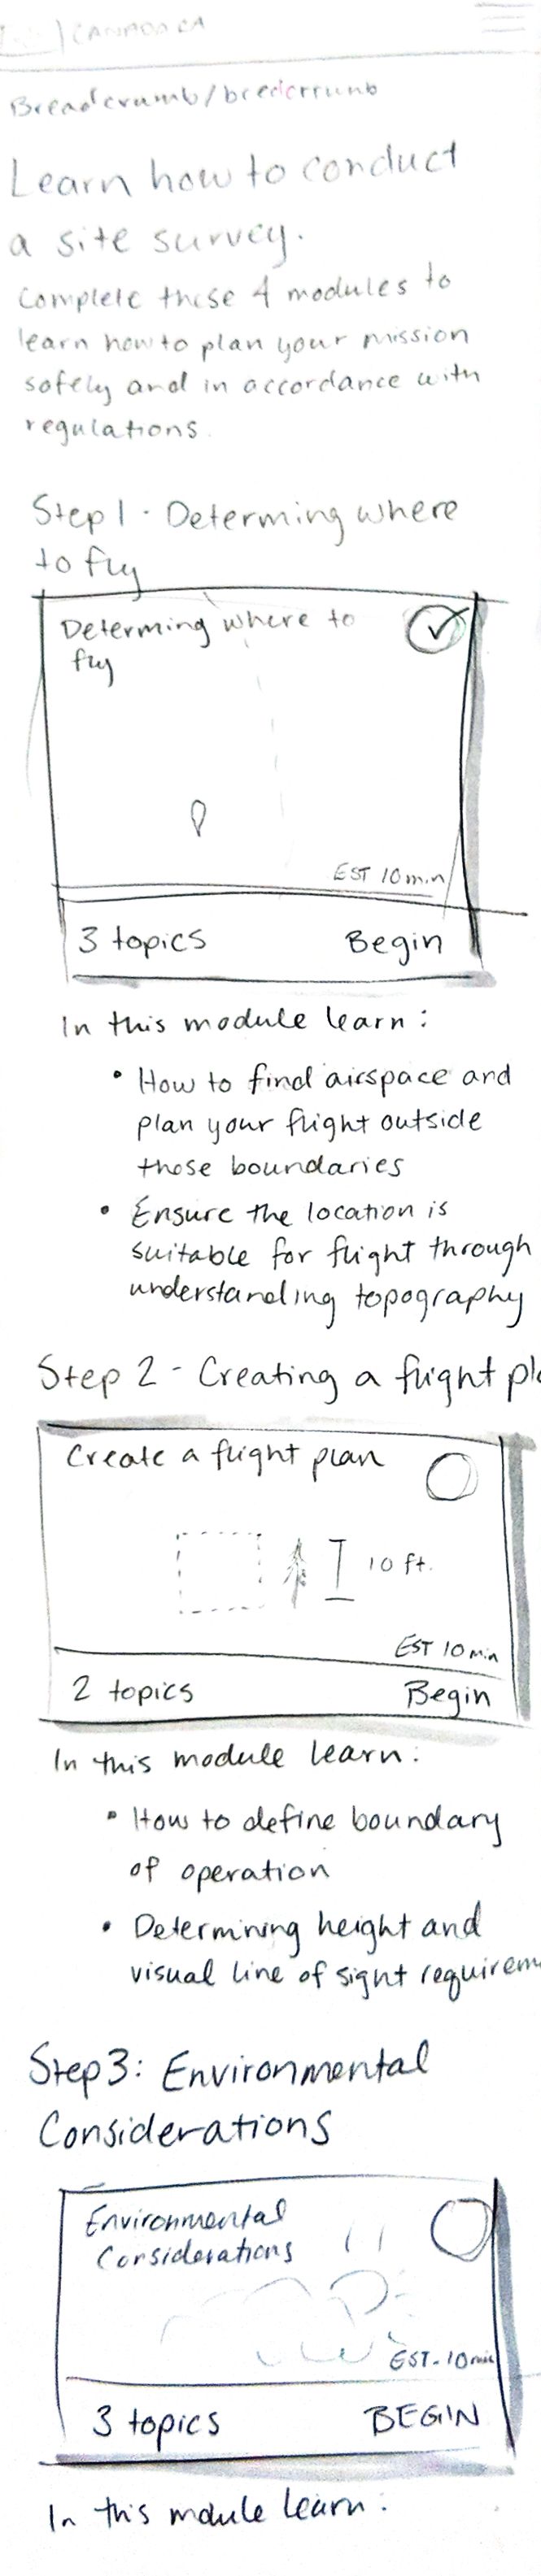 | CANADA.CA
Breadcrumb/bredcrrumb
Learn how to conduct
a site survey.
Complete these 4 modules to
learn how to plan your mission
safely and in accordance with
regulations.
Step 1 - Determing where
to fly
Determing where to
fly
EST 10 min
3 topics Begin
In this module learn:
• How to find airspace and
plan your flight outside
those boundaries
• Ensure the location is
suitable for flight through
understanding topography
Step 2 - Creating a flight pla
Create a flight plan
10 ft.
EST 10 min
2 topics Begin
In this module learn:
• How to define boundary
of operation
• Determining height and
visual line of sight requirem
Step 3: Environmental
Considerations
Environmental
Considerations
EST- 10 min
3 topics BEGIN
In this module learn: